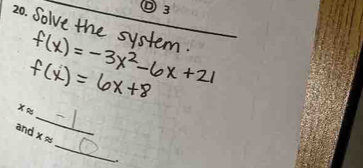 D 3
20. Solve the system.
f(x) = -3x²-6x+21
f(x) = 6x+8
x ≈ -1
and x ≈ 0.